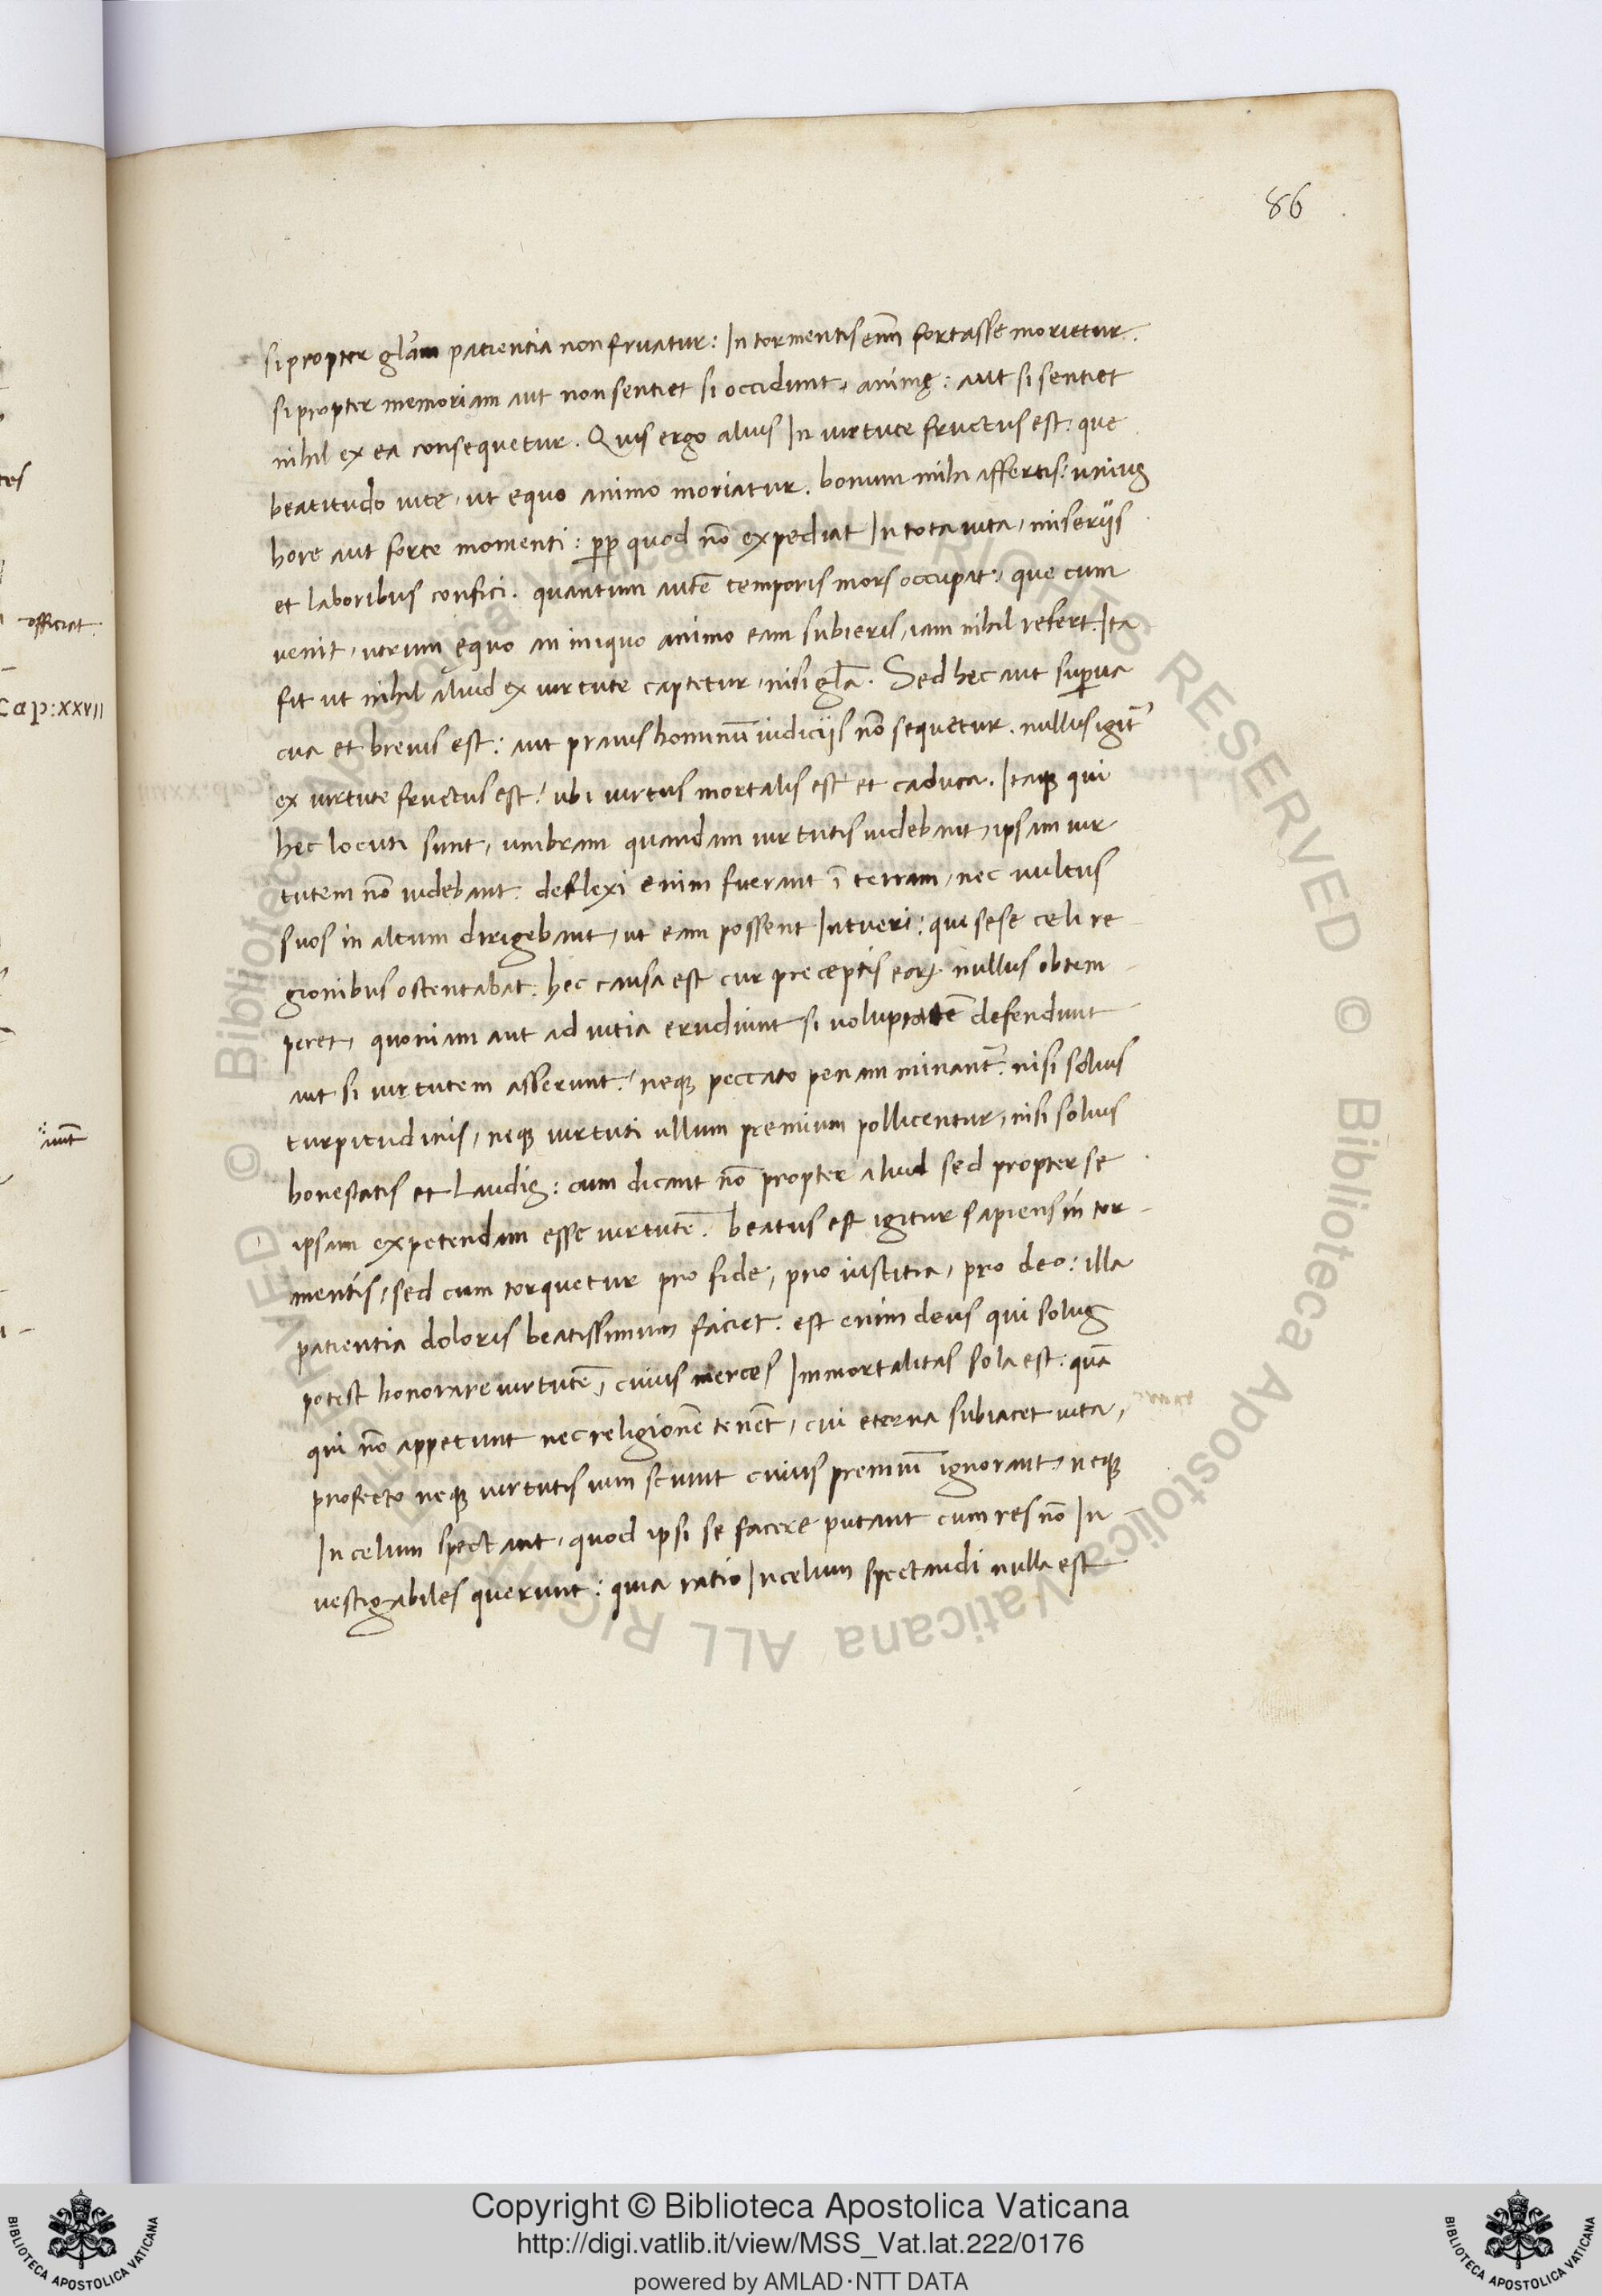 86
si propter gl̃am patientia non fruatur: In tormentis enim̃ fortasse morietur.
si propter memoriam aut non sentiet si occidunt, animę: aut si sentiet
nihil ex ea consequetur. Quis ergo alius In uirtute fructus est: que
beatitudo uite, ut equo animo moriatur. bonum mihi affertis: unius
hore aut forte momenti: pp̃ quod nõ expediat In tota uita, miserijs
et laboribus confici. quantum autẽ temporis mors occupat, que cum
uenit, utrum ęquo an iniquo animo eam subieris, iam nihil refert. Ita
fit ut nihil aliud ex uirtute captetur, nisi gl̃a. Sed hec aut sup̱ua
cua et breuis est: aut prauis hominũ iudicijs nõ sequetur. nullus igit̃
ex uirtute fructus est, ubi uirtus mortalis est et caduca. Itaqꝫ qui
hec locuti sunt, umbram quandam uirtutis uidebant, ipsam uir
tutem nõ uidebant. deflexi enim fuerant ĩ terram, nec uultus
suos in altum dirigebant, ut eam possent Intueri: qui sese celi re
gionibus ostentabat. hec causa est cur preceptis eoꝝ nullus obtem
peret, quoniam aut ad uitia erudiunt si uoluptatẽ defendunt
aut si uirtutem asserunt, neqꝫ peccato penam minant̃ nisi solius
turpitudinis, neqꝫ uirtuti ullum premium pollicentur, nisi solius
honestatis et Laudis: cum dicant nõ propter aliud sed propter se
ipsam expetendam esse uirtutẽ. beatus est igitur sapiens in tor
mentis, sed cum torquetur pro fide, pro iustitia, pro deo: illa
patientia doloris beatissimum faciet. est enim deus qui solus
potest honorare uirtutẽ, cuius merces Inmortalitas sola est: quã
qui nõ appetunt nec religionẽ tenẽt, cui eterna subiacet uita,
profecto neqꝫ uirtutis uim sciunt cuius premiũ ignorant, neqꝫ
In celum spectant, quod ipsi se facere putant cum res nõ In
uestigabiles querunt: quia ratio In celum spectandi nulla est
officiat
Cap: xxvii
© Biblioteca Apostolica Vaticana ALL RIGHTS RESERVED © Biblioteca Apostolica Vaticana ALL RIGHTS RESERVED
Copyright © Biblioteca Apostolica Vaticana
http://digi.vatlib.it/view/MSS_Vat.lat.222/0176
powered by AMLAD·NTT DATA
BIBLIOTECA APOSTOLICA VATICANA
BIBLIOTECA APOSTOLICA VATICANA